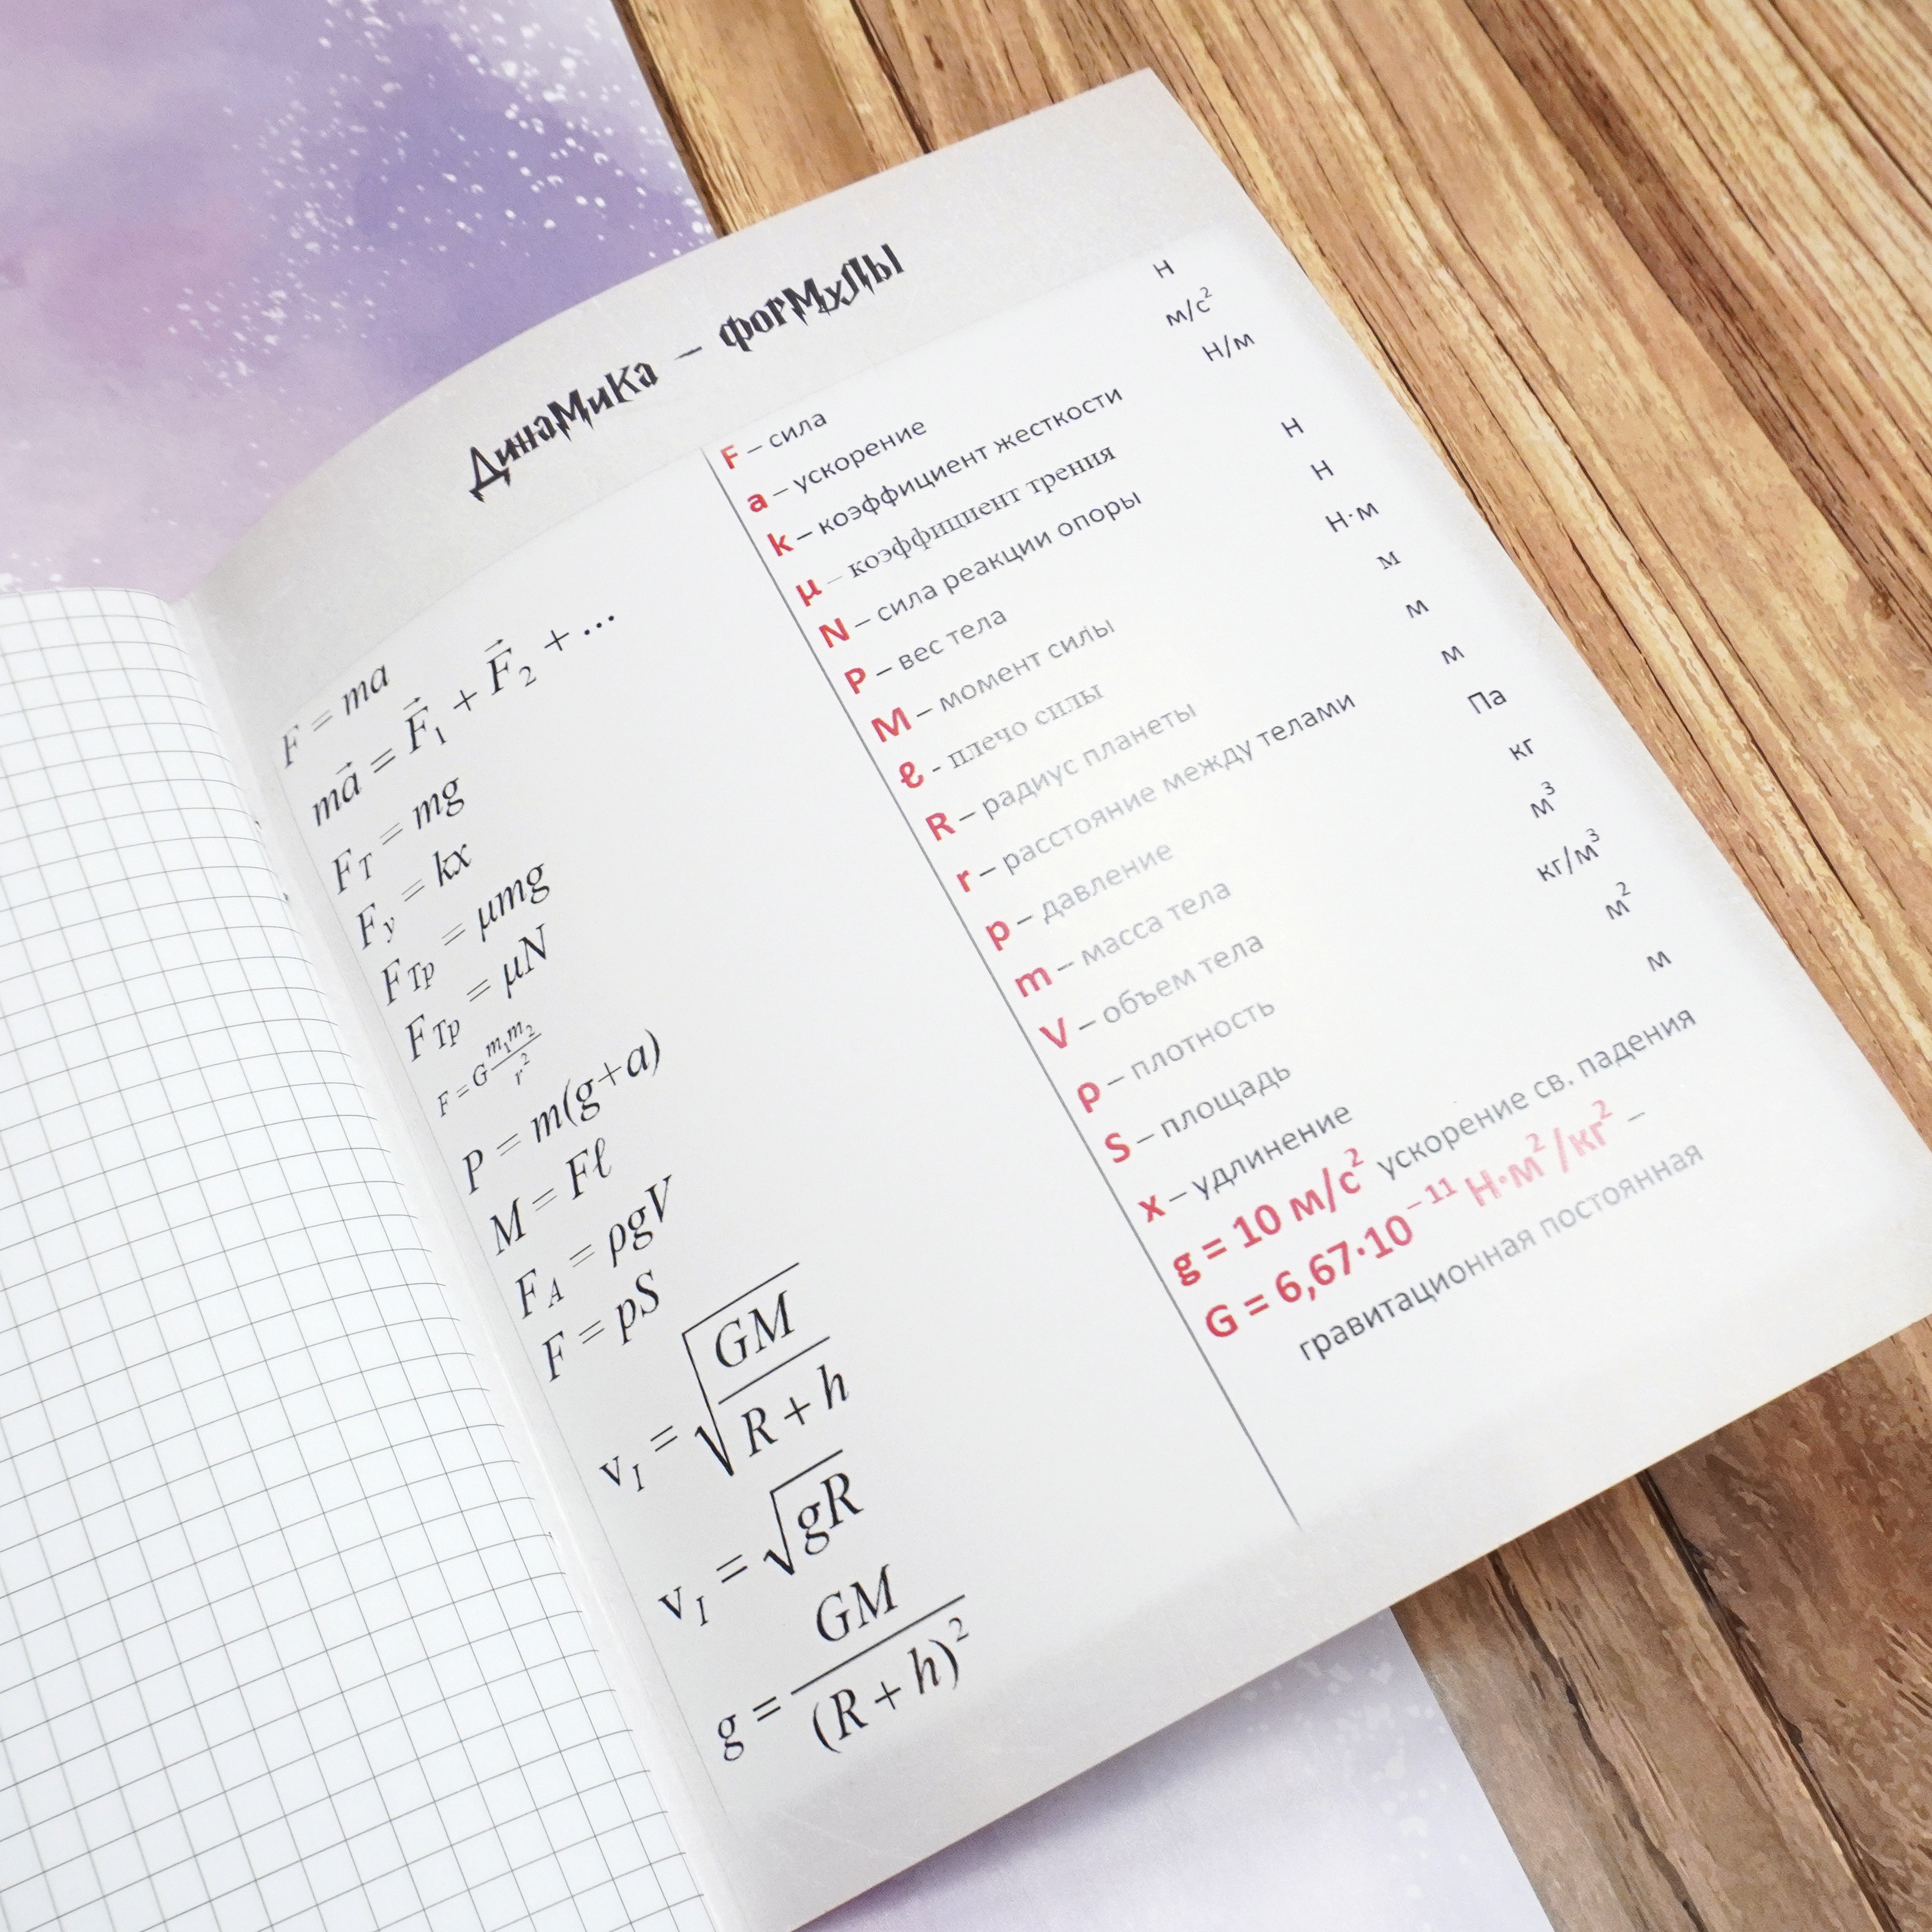 Динамика – формулы
F = ma
ma⃗ = F⃗₁ + F⃗₂ + ...
Fт = mg
Fу = kx
Fтр = μmg
Fтр = μN
F = G m₁m₂ / r²
P = m(g+a)
M = Fℓ
F_A = ρgV
F = pS
v_I = √(GM / (R + h))
v_I = √gR
g = GM / (R + h)²
F – сила Н
a – ускорение м/с²
k – коэффициент жесткости Н/м
μ – коэффициент трения
N – сила реакции опоры Н
P – вес тела Н
M – момент силы Н·м
ℓ - плечо силы м
R – радиус планеты м
r – расстояние между телами м
p – давление Па
m – масса тела кг
V – объем тела м³
ρ – плотность кг/м³
S – площадь м²
x – удлинение м
g = 10 м/с² ускорение св. падения
G = 6,67·10⁻¹¹ Н·м²/кг² –
гравитационная постоянная